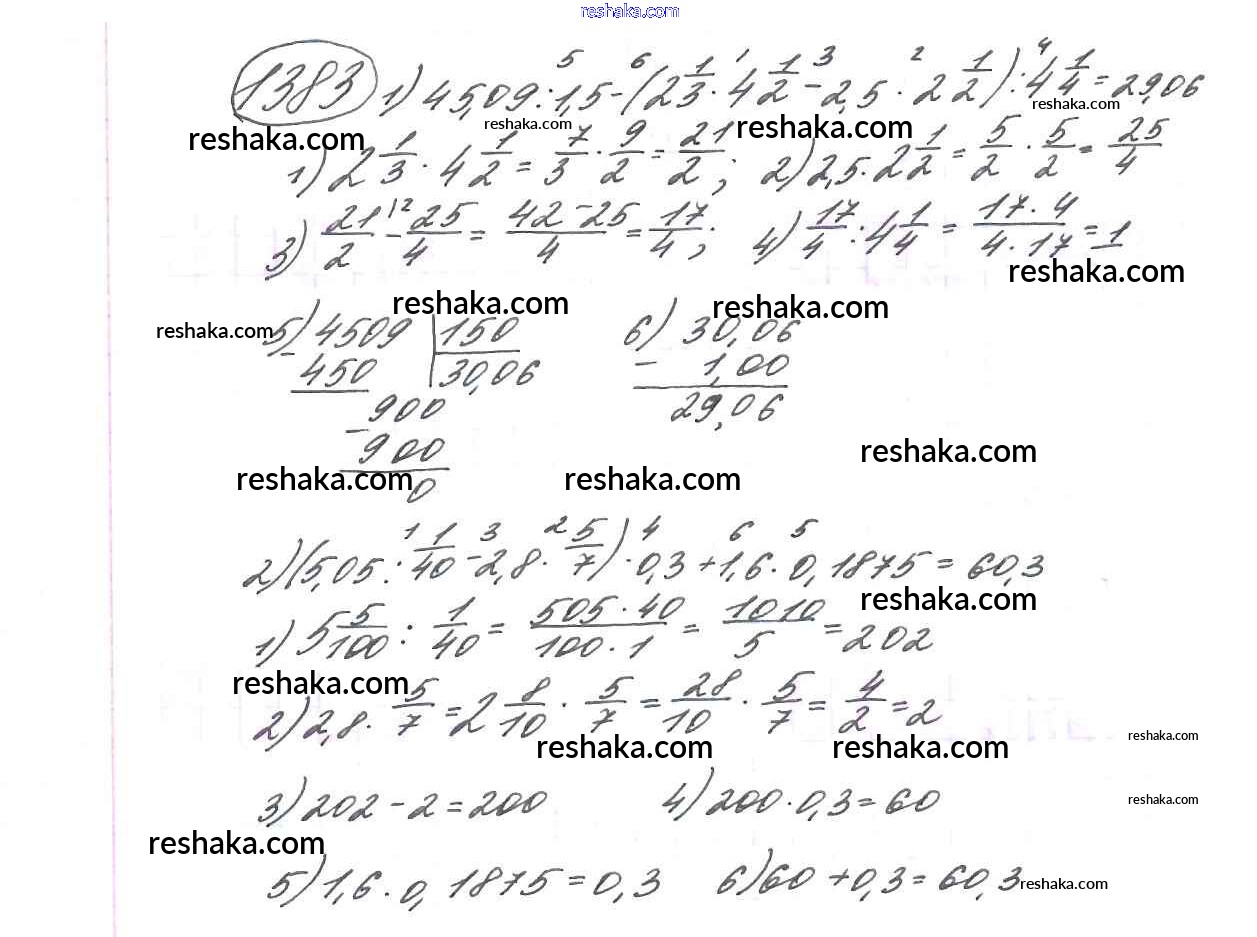 reshaka.com
1383 1) 45,09 : 1,5 - (2 1/3 · 4 1/2 - 2,5 · 2 1/2) : 4 1/4 = 29,06
5 6 1 3 2 4
reshaka.com reshaka.com reshaka.com reshaka.com
1) 2 1/3 · 4 1/2 = 7/3 · 9/2 = 21/2; 2) 2,5 · 2 1/2 = 5/2 · 5/2 = 25/4
3) 21/2 \2 - 25/4 = 42 - 25/4 = 17/4; 4) 17/4 : 4 1/4 = 17 · 4/4 · 17 = 1
reshaka.com
reshaka.com reshaka.com
reshaka.com 5) 4509 | 150 6) 30,06
- 450 30,06 - 1,00
- 900 29,06
900
reshaka.com
reshaka.com 0 reshaka.com
2) (5,05 : 1/40 - 2,8 · 5/7) · 0,3 + 1,6 · 0,1875 = 60,3
1 3 2 4 6 5
reshaka.com
1) 5 5/100 : 1/40 = 505 · 40/100 · 1 = 1010/5 = 202
reshaka.com
2) 2,8 · 5/7 = 2 8/10 · 5/7 = 28/10 · 5/7 = 4/2 = 2
reshaka.com reshaka.com reshaka.com
3) 202 - 2 = 200 4) 200 · 0,3 = 60 reshaka.com
reshaka.com
5) 1,6 · 0,1875 = 0,3 6) 60 + 0,3 = 60,3 reshaka.com